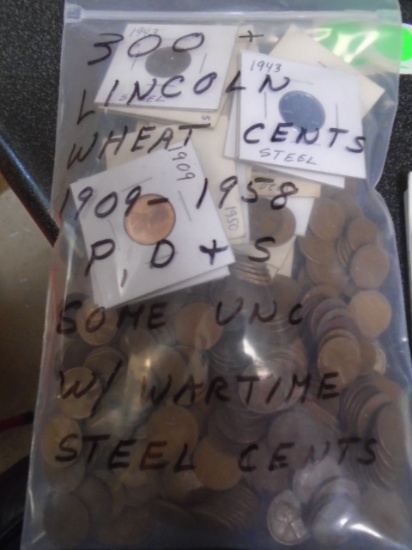 1943
300 +
LINCOLN
STEEL
1943
WHEAT CENTS
STEEL
1909
1909-1958
1950
P, D + S
SOME UNC
W/ WARTIME
STEEL CENTS